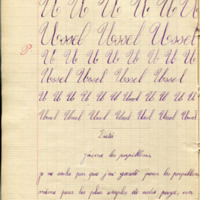 U U U U U U U
Ussel Ussel Ussel
U U U U U U U U U
Ussel Ussel Ussel Ussel
U U U U U Ussel U U U U
Ussel Ussel Ussel Ussel Ussel Ussel
Dictée
J'aime les papillons
je ne sache pas que j'ai gardé pour les papillons
même pour les plus simples de notre pays, une